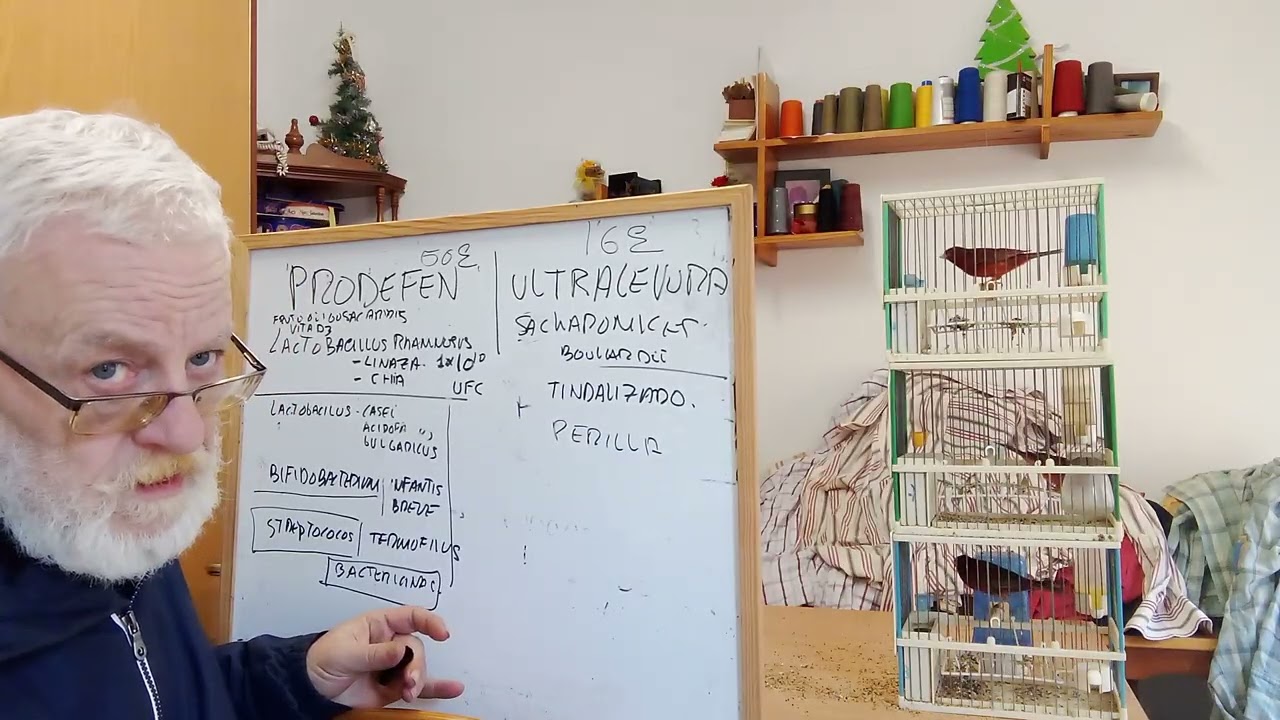 50€
PRODEFEN
FRUTOOLIGOSACARIDOS
VITA D3
LACTOBACILLUS RHAMNOSUS
- LINAZA 1x10¹⁰
- CHIA UFC
LACTOBACILUS - CASEI
ACIDOFI "
BULGARICUS
BIFIDOBACTERIUM INFANTIS
BREVE
STREPTOCOCOS TERMOFILUS
16€
ULTRALEVURA
SACHAROMICES
BOULARDII
TINDALIZADO.
+
PERILLA
!